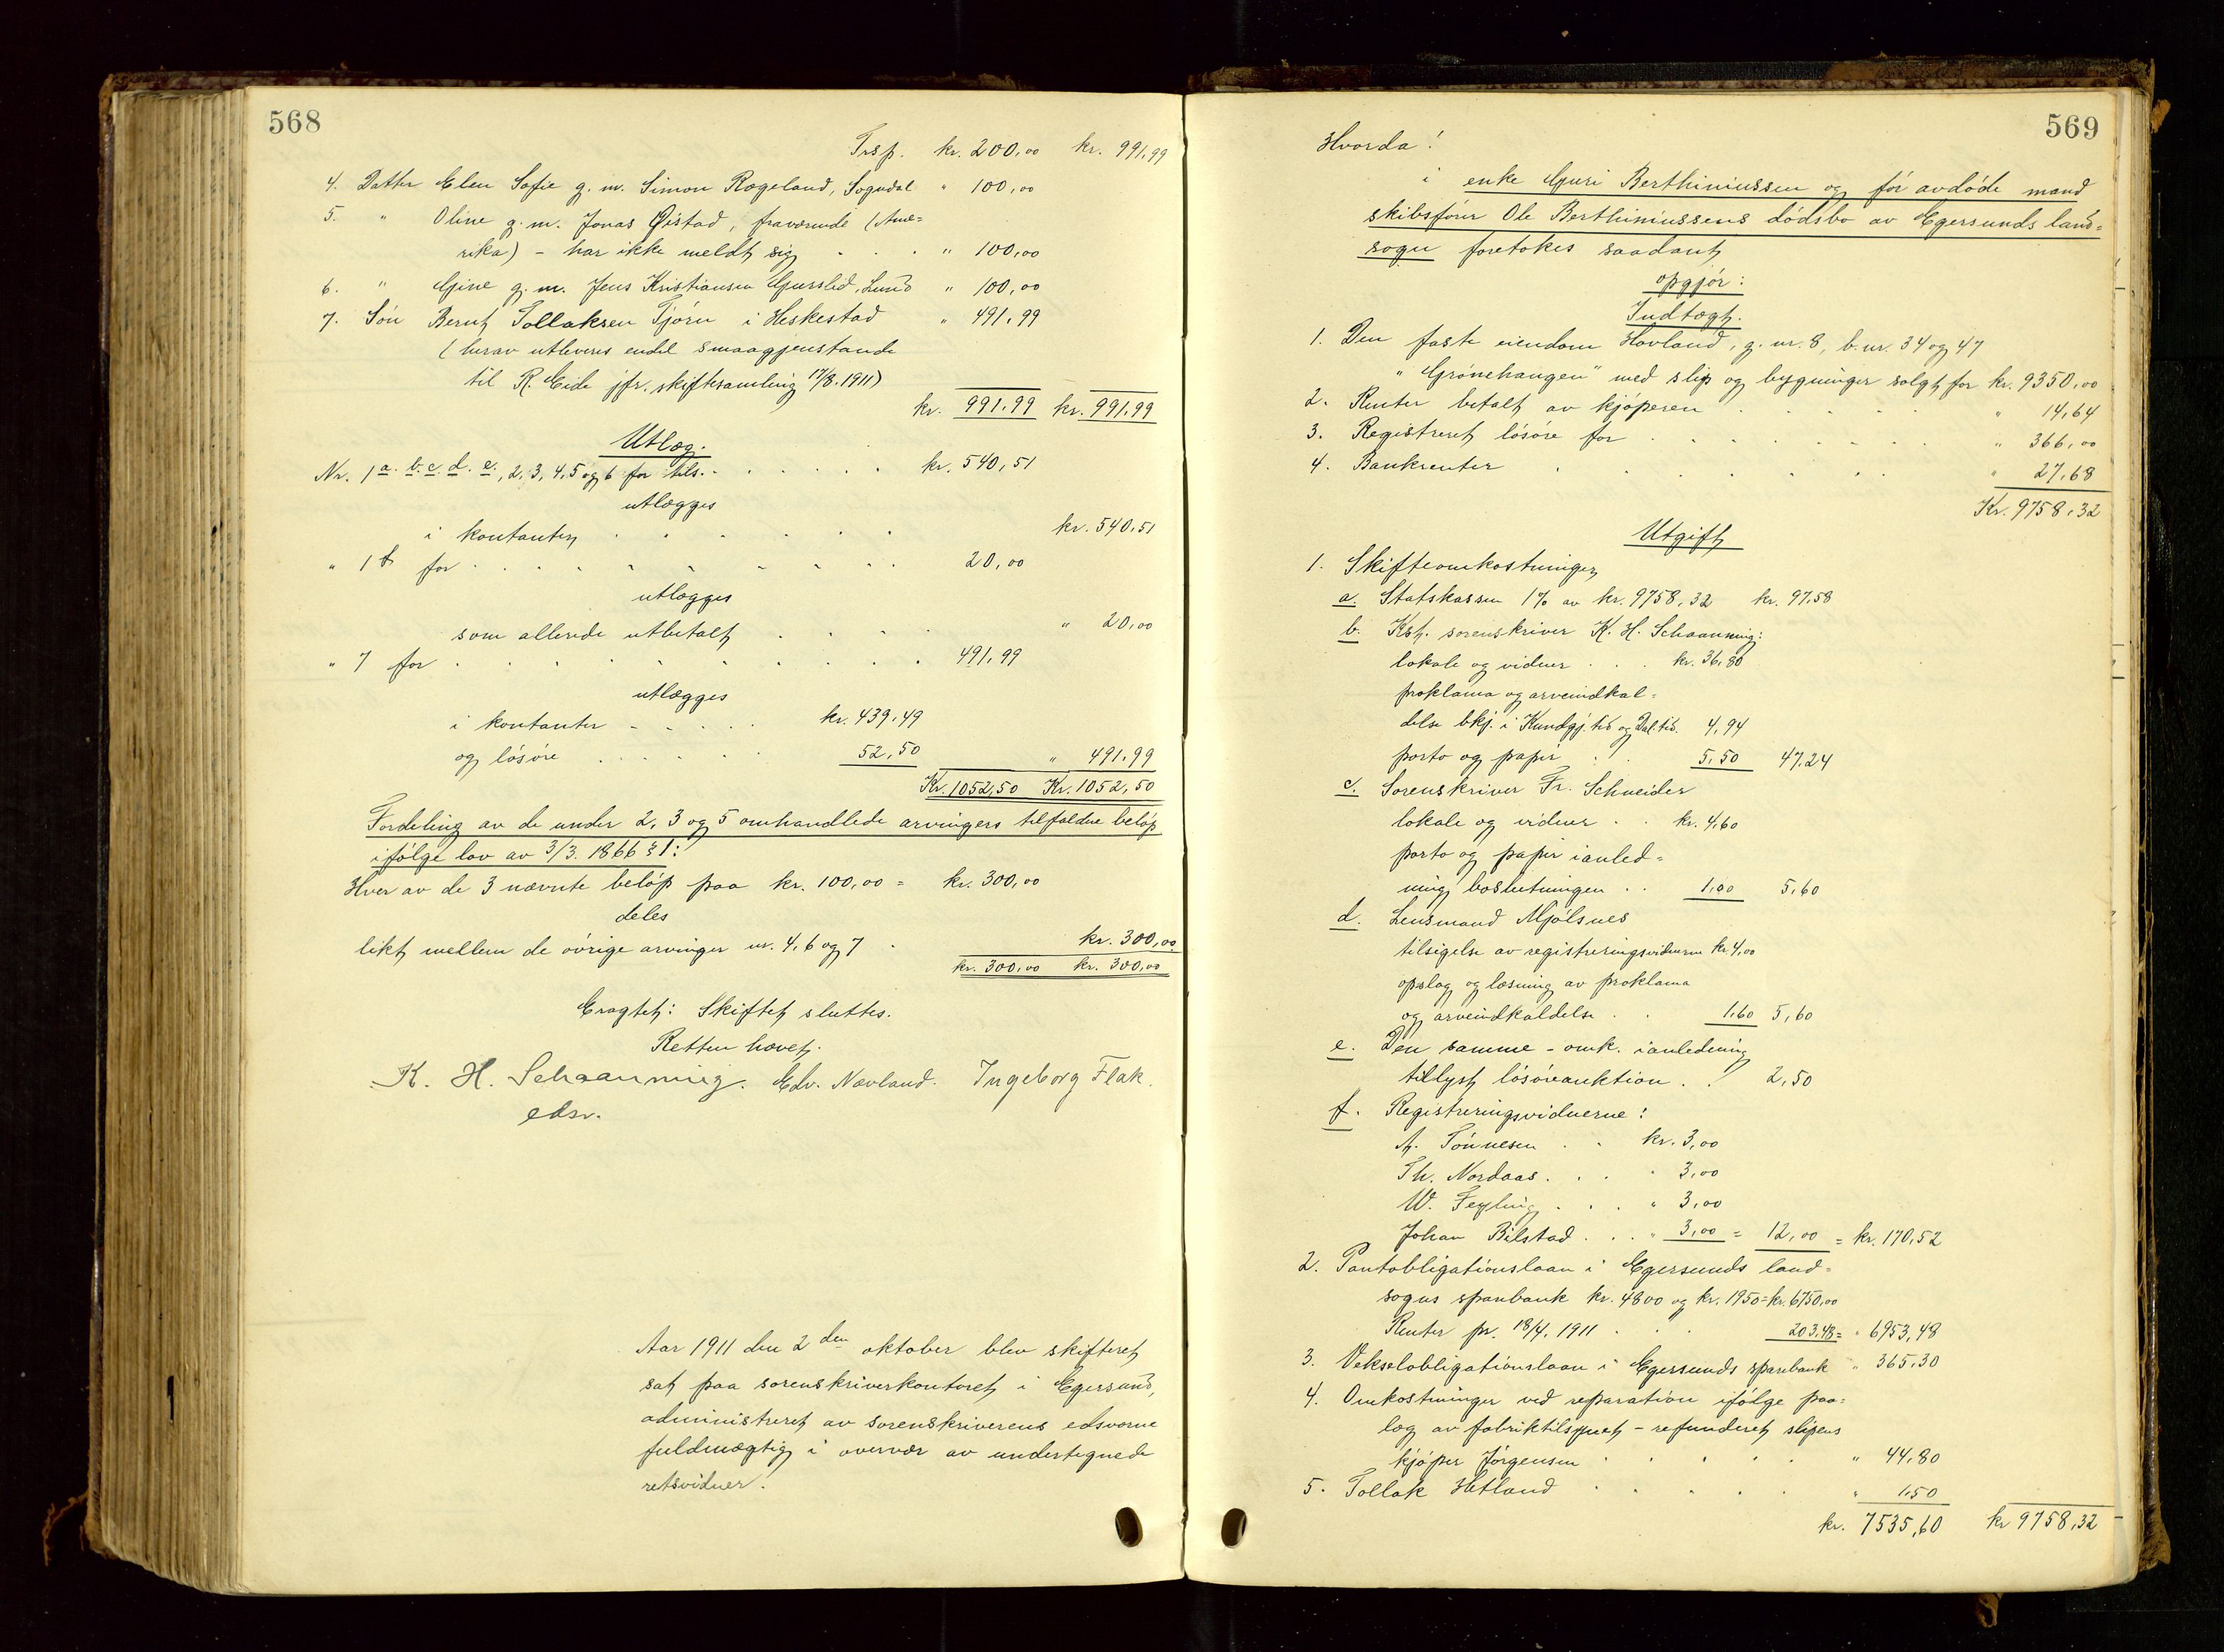 568
Trsp. kr. 200,00 kr. 991,99
4. Datter Elen Sofie g. m. Simon Rageland, Sogndal " 100,00
5. " Oline g. m. Jonas Øistad, fraværende (Ame=
rika) - har ikke meldt sig . . . " 100,00
6. " Gine g. m. Jens Kristiansen Gursled, Lund " 100,00
7. Sön Bernt Tollaksen Tjörn i Heskestad " 491,99
(herav utleveres endel smaagjenstande
til R. Eide jfr. skiftesamling 17/8. 1911)
kr. 991,99 kr. 991,99
Utlæg.
Nr. 1 a. b. c. d. e., 2, 3, 4, 5 og 6 for tils. . . . . . kr. 540,51
utlægges
i kontanter . . . . . . kr. 540,51
" 1 f for . . . . . . . . . 20,00
utlægges
som allerede utbetalt . . . . " 20,00
" 7 for . . . . . . . . . 491,99
utlægges
i kontanter . . . . kr. 439,49
og lösöre . . . . . 52,50 " 491,99
Kr. 1052,50 Kr. 1052,50
Fordeling av de under 2, 3 og 5 omhandlede arvingers tilfaldne belöp
ifölge lov av 3/3. 1866 § 1:
Hver av de 3 nævnte belöp paa kr. 100,00 = kr. 300,00
deles
likt mellem de övrige arvinger nr. 4, 6 og 7 . kr. 300,00
kr. 300,00 kr. 300,00
Eragtet: Skiftet sluttes.
Retten hævet.
K. H. Schaanning. Edv. Nævland. Ingeborg Flak.
edsv.
Aar 1911 den 2den oktober blev skifteret
sat paa sorenskriverkontoret i Egersund,
administreret av sorenskriverens edsvorne
fuldmægtig i overvær av undertegnede
retsvidner.
569
Hvorda!
i enke Guri Berthiniussen og för avdöde mand
skibsförer Ole Berthiniussens dödsbo av Egersunds land=
sogn foretokes saadant
opgjör:
Indtægt.
1. Den faste eiendom Hovland, g. nr. 8, b. nr. 34 og 47
"Grönehaugen" med slip og bygninger solgt for kr. 9350,00
2. Renter betalt av kjöperen . . . . . " 14,64
3. Registreret lösöre for . . . . . . . " 366,00
4. Bankrenter . . . . . . " 27,68
Kr. 9758,32
Utgift
1. Skifteomkostninger
a. Statskassen 1% av kr. 9758,32 kr. 97,58
b. Kst. sorenskriver K. H. Schaanning:
lokale og vidner . . . kr. 36,80
proklama og arveindkal=
delse bkj. i Kundgj. tid og Dal. tid. 4,94
porto og papir . . 5,50 47,24
c. Sorenskriver Fr. Schneider
lokale og vidner . . kr. 4,60
porto og papir i anled=
ning boslutningen . . 1,00 5,60
d. Lensmand Mjölsnes
tilsigelse av registreringsvidnerne kr. 4,00
opslag og læsning av proklama
og arveindkaldelse . . 1,60 5,60
e. Den samme - omk. i anledning
tillyst lösöreauktion . . 2,50
f. Registreringsvidnerne:
A. Tönnesen . . kr. 3,00
Th. Nordaas . . . " 3,00
W. Feyling . . . " 3,00
Johan Bilstad . . . " 3,00 = 12,00 = kr. 170,52
2. Pantobligationslaan i Egersunds land=
sogns sparebank kr. 4800 og kr. 1950 = kr. 6750,00
Renter pr. 18/4. 1911 . . . 203,48 = " 6953,48
3. Vekselobligationslaan i Egersunds sparebank " 365,30
4. Omkostninger ved reparation ifölge paa=
læg av fabriktilsynet - refunderet slipens
kjöper Jörgensen . . . . . " 44,80
5. Tollak Hetland . . . . . " 1,50
kr. 7535,60 kr 9758,32